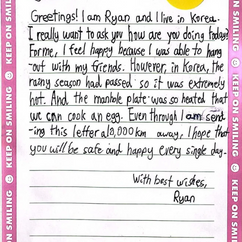 Greetings! I am Ryan and I live in Korea.
I really want to ask you how are you doing today?
For me, I feel happy because I was able to hang
out with my friends. However, in Korea, the
rainy season had passed so it was extremely
hot. And the manhole plate was so heated that
we can cook an egg. Even through I am send-
ing this letter a 10,000 km away, I hope that
you will be safe and happy every single day.
With best wishes,
Ryan
KEEP ON SMILING
KEEP ON SMILING
KEEP ON SMILING
KEEP ON SMILING
KEEP ON SMILING